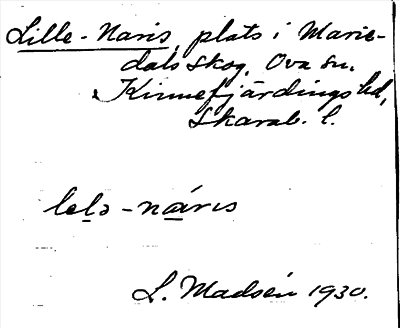 Lille-Naris, plats i Marie-
dals skog, Ova sn.
Kinnefjärdings hd,
Skarab. l.
lelə-náris
L. Madsén 1930.